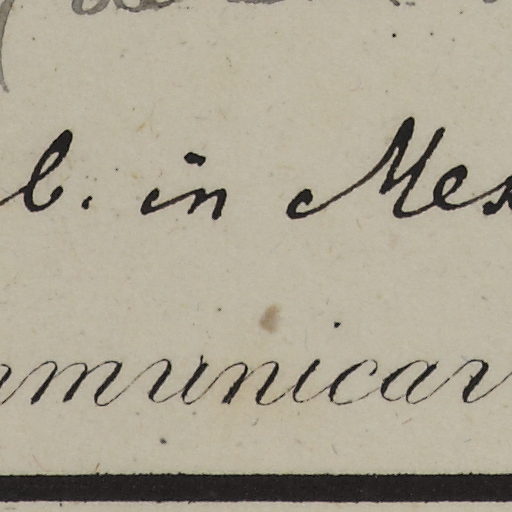 b. in Mex
mmunicar